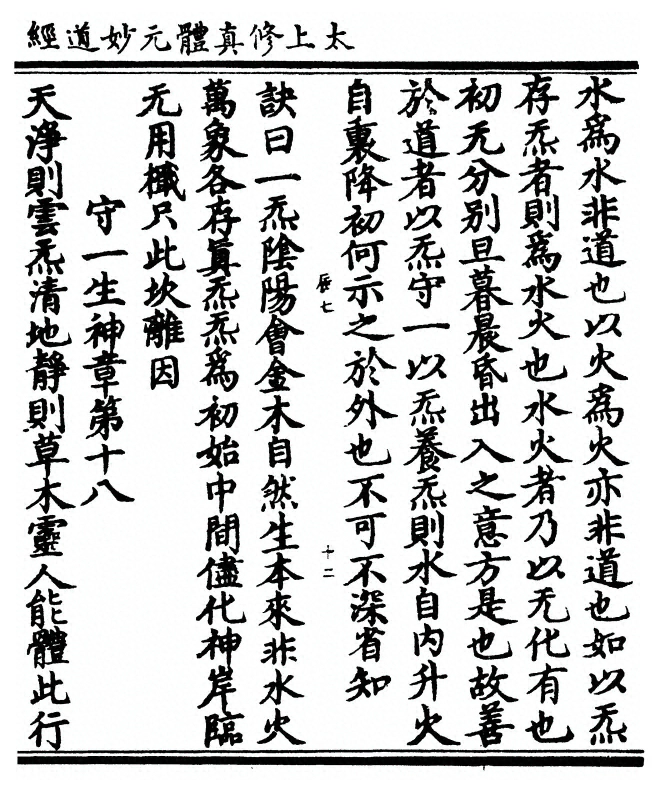 太上修真體元妙道經
水爲水非道也以火爲火亦非道也如以炁
存炁者則爲水火也水火者乃以无化有也
初无分别旦暮晨昏出入之意方是也故善
於道者以炁守一以炁養炁則水自内升火
自裏降初何示之於外也不可不深省知
辰七
十二
訣曰一炁陰陽會金木自然生本來非水火
萬象各存眞炁炁爲初始中間儘化神岸臨
无用檥只此坎離因
守一生神章第十八
天淨則雲炁清地靜則草木靈人能體此行